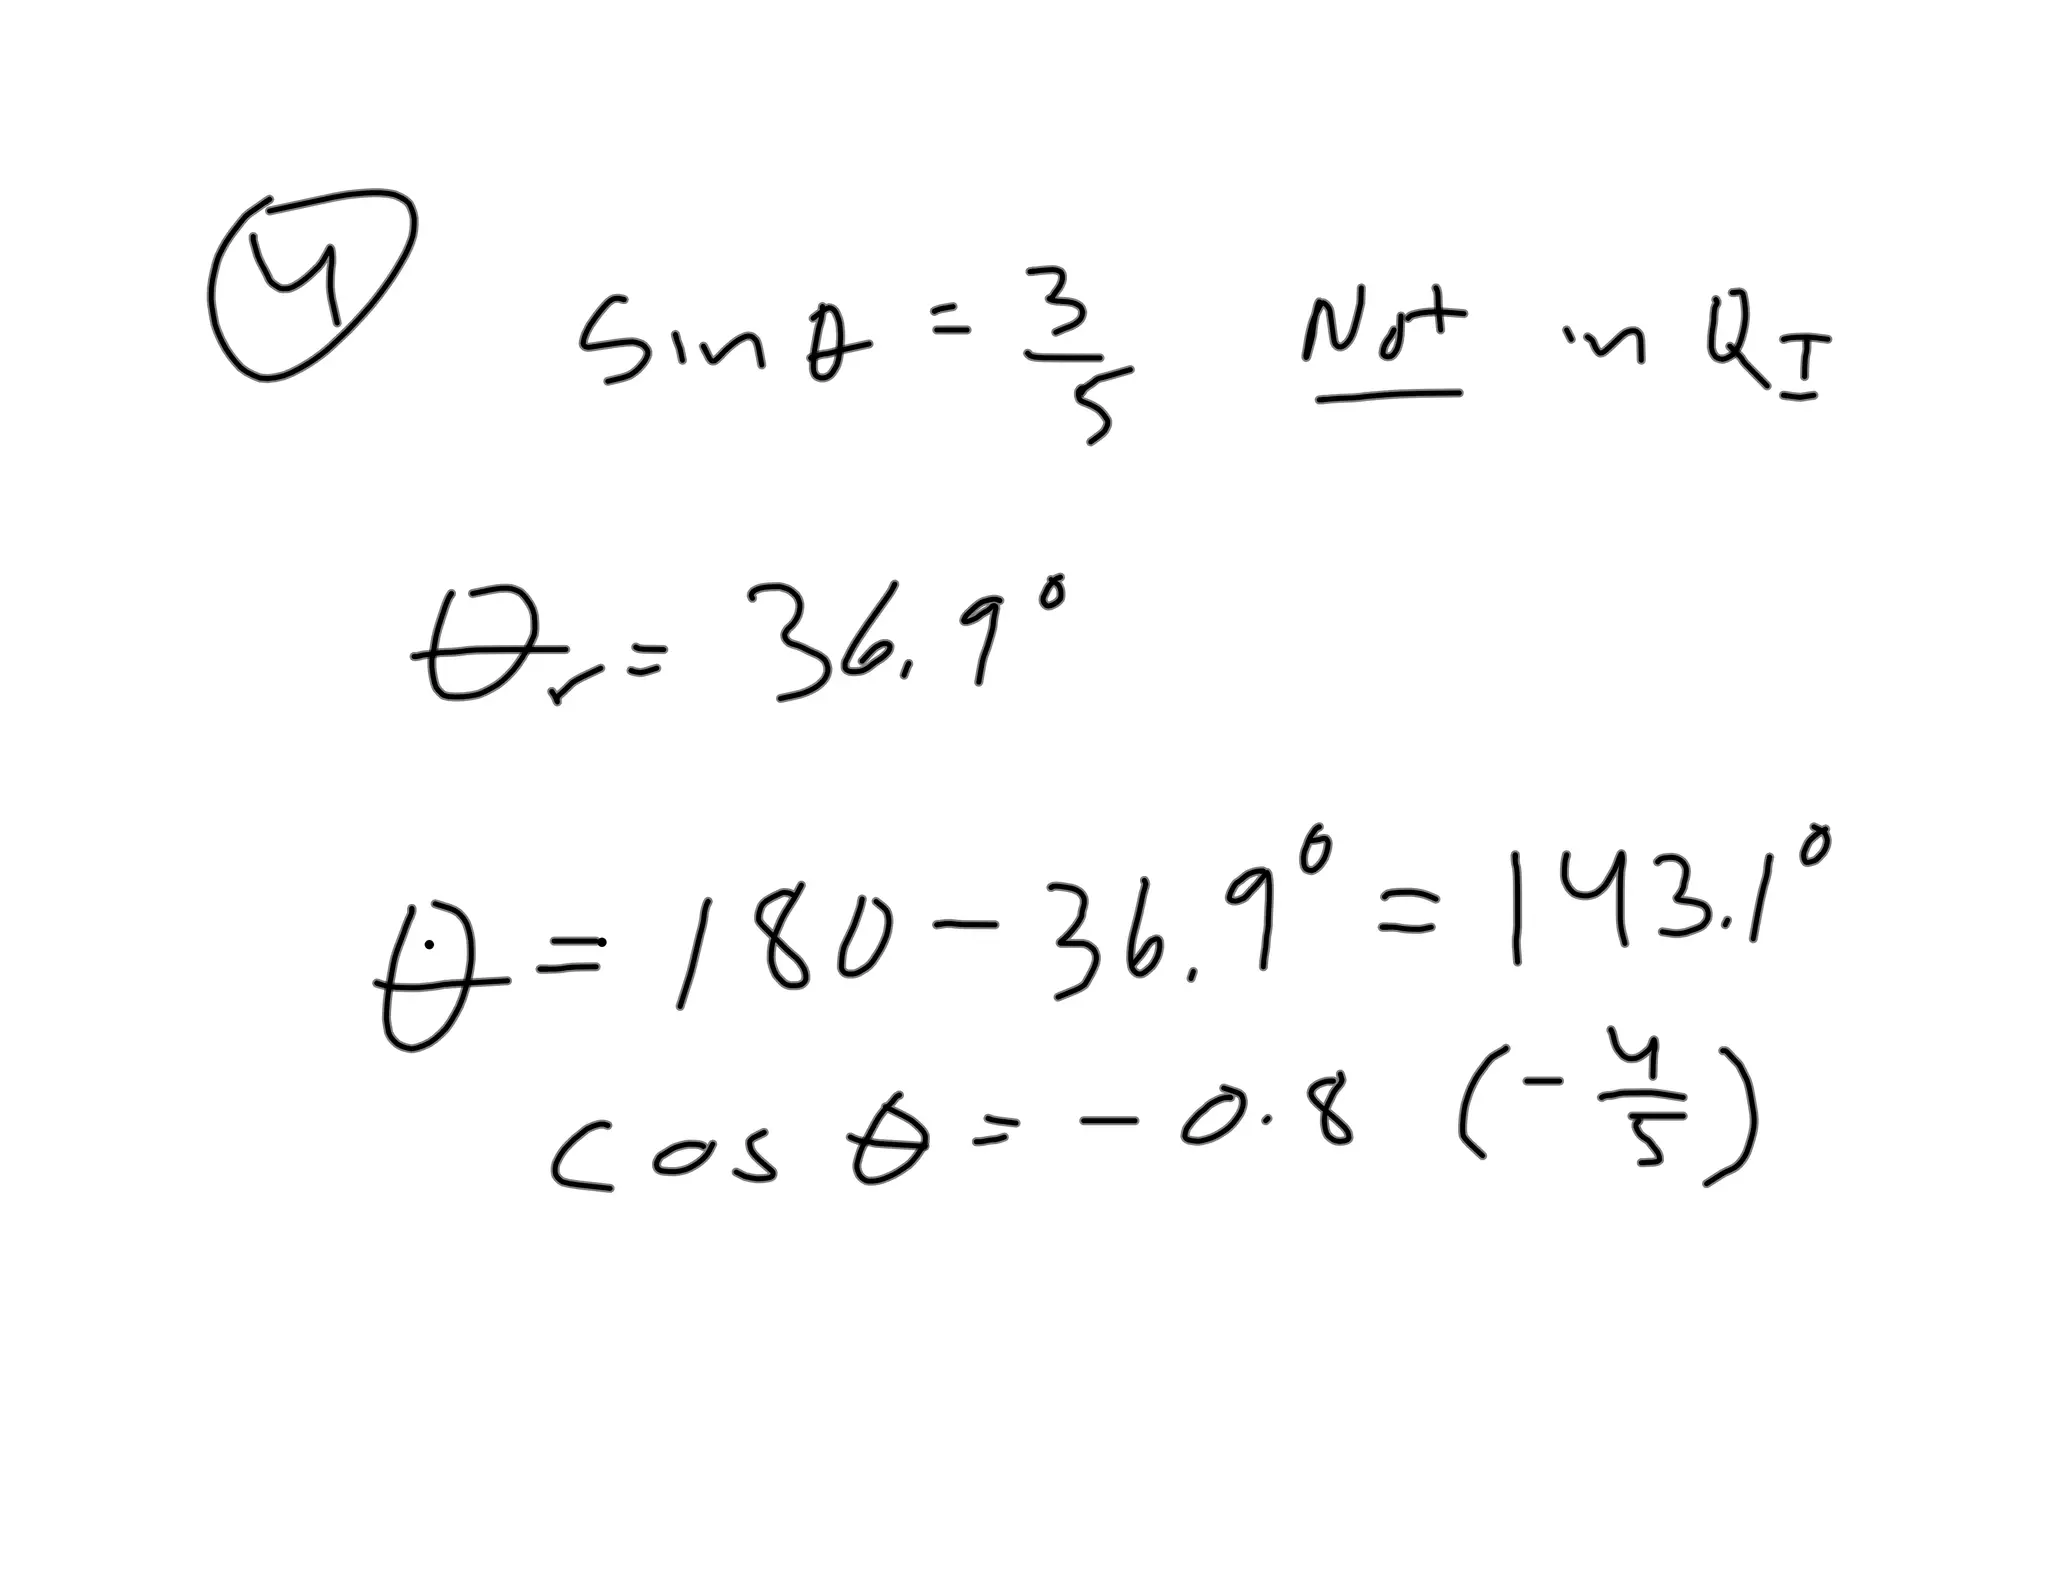 ④ sin θ = 3/5 Not in QI
θr = 36.9°
θ = 180 - 36.9° = 143.1°
cos θ = - 0.8 (- 4/5)